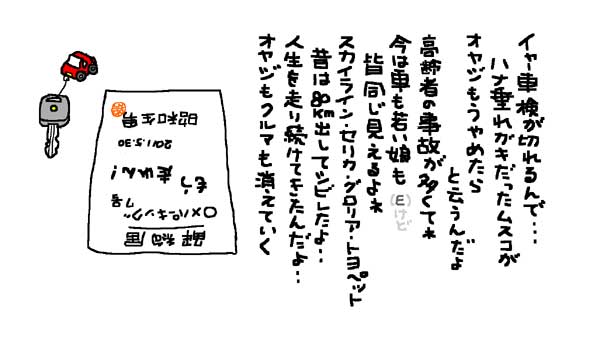 イャー車検が切れるんで…
ハナ垂れガキだったムスコが
オヤジもうやめたら
と云うんだよ
高齢者の事故が多くてネ
今は車も若い娘も
(E)けど
皆同じ見えるよネ
スカイライン・セリカ・グロリア・トヨペット
昔は80km出してシビレたよ…
人生を走り続けてきたんだよ…
オヤジもクルマも消えていく
解約届
○×パーキング
7号
もう
走れん!
2011.5.30
昭和生男